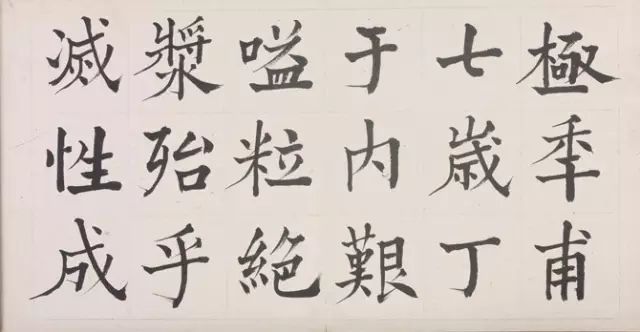 極秊甫
七歳丁
于内艱
嗌粒絶
漿殆乎
滅性成